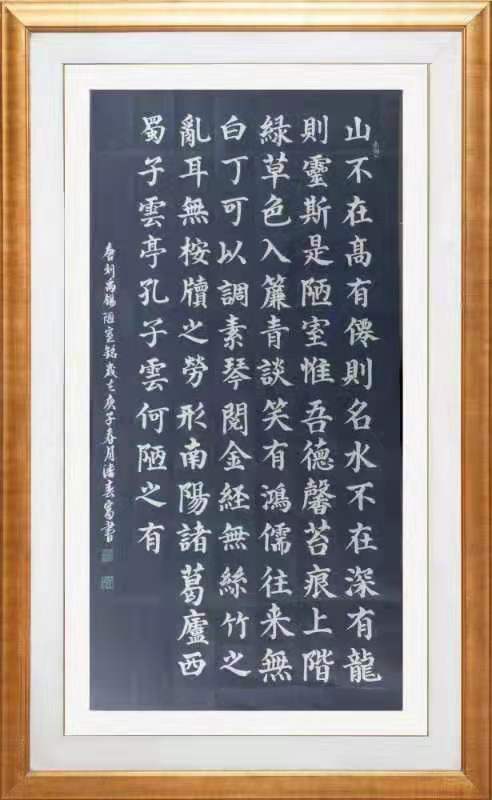 山不在髙有僊則名水不在深有龍
則靈斯是陋室惟吾德馨苔痕上階
緑草色入簾青談笑有鴻儒往来無
白丁可以調素琴閱金経無絲竹之
亂耳無桉牘之勞形南陽諸葛廬西
蜀子雲亭孔子雲何陋之有
唐刘禹锡陋室銘歲在庚子春月潘春富書